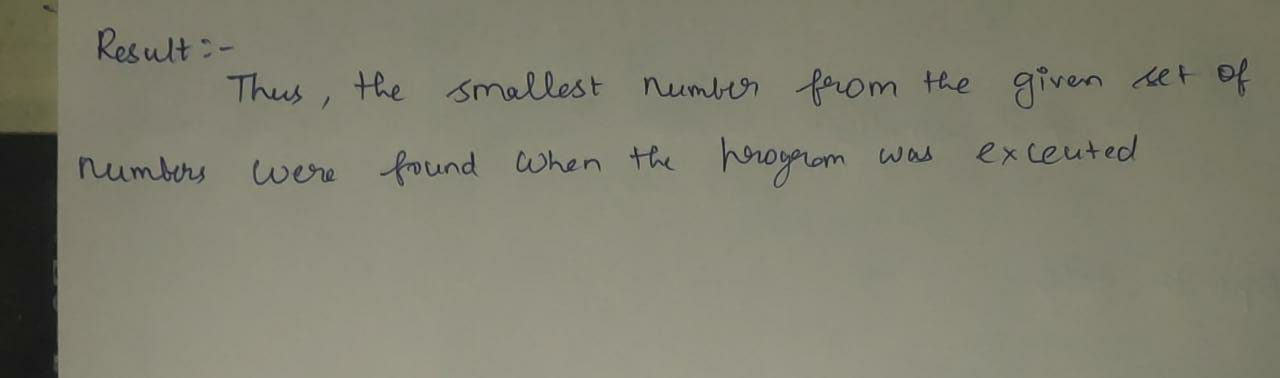 Result :-
Thus, the smallest number from the given set of
numbers were found when the program was exceuted